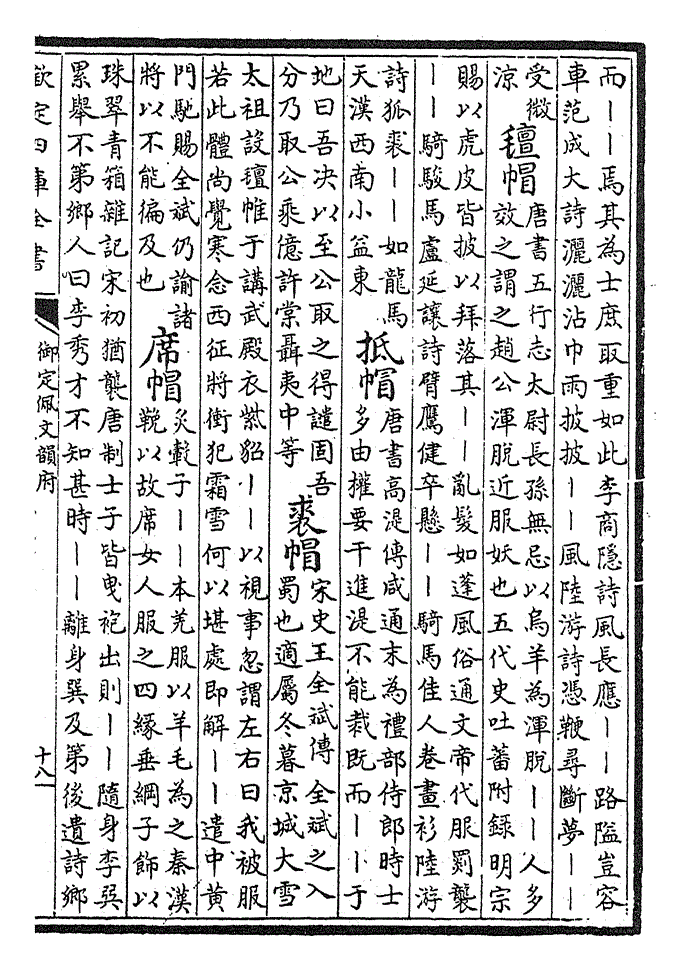 而——焉其為士庶取重如此李商隱詩風長應——路隘豈容
車范成大詩灑灑沾巾雨披披——風陸游詩憑鞭尋斷夢——
受微
涼
氊帽
唐書五行志太尉長孫無忌以烏羊為渾脫——人多
效之謂之趙公渾脫近服妖也五代史吐蕃附錄明宗
賜以虎皮皆披以拜落其——亂髮如蓬風俗通文帝代服罽襲
——騎駿馬盧延讓詩臂鷹健卒懸——騎馬佳人卷畫衫陸游
詩狐裘——如龍馬
天漢西南小益東
抵帽
唐書高湜傳咸通末為禮部侍郎時士
多由權要干進湜不能裁既而——于
地曰吾決以至公取之得譴固吾
分乃取公乘億許棠聶夷中等
裘帽
宋史王全斌傳 全斌之入
蜀也適屬冬暮京城大雪
太祖設氊帷于講武殿衣紫貂——以視事忽謂左右曰我被服
若此體尚覺寒念西征將衝犯霜雪何以堪處即解——遣中黃
門馳賜全斌仍諭諸
將以不能徧及也
席帽
炙轂子——本羌服以羊毛為之秦漢
鞔以故席女人服之四緣垂網子飾以
珠翠青箱雜記宋初猶襲唐制士子皆曳袍出則——隨身李巽
累舉不第鄉人曰李秀才不知甚時——離身巽及第後遺詩鄉
欽定四庫全書
御定佩文韻府
十八